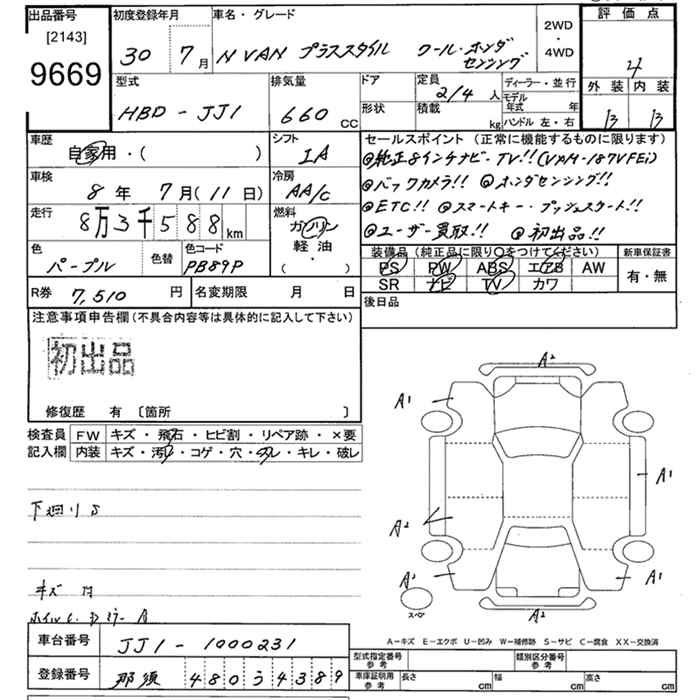 出品番号
[2143]
9669
初度登録年月
30 7月
車名・グレード
N VAN プラススタイル クール・ホンダ
センシング
2WD
・
4WD
評価点
4
外装 内装
B B
型式
HBD-JJ1
排気量
660 cc
ドア
形状
定員
2/4 人
積載
kg
ディーラー・並行
モデル
年式 年
ハンドル 左・右
車歴
自家用・( )
シフト
IA
車検
8年 7月(11日)
冷房
AA/C
走行
8万3千588km
燃料
ガソリン
軽油
( ・ )
色
パープル
色替
色コード
PB89P
R券 7,510 円
名変期限 月 日
セールスポイント (正常に機能するものに限ります)
◎純正8インチナビ・TV!!(VAM-187VFEi)
◎バックカメラ!! ◎ホンダセンシング!!
◎ETC!! ◎スマートキー・プッシュスタート!!
◎ユーザー買取!! ◎初出品!!
装備品(純正品に限り〇をつけてください)
新車保証書
PS PW ABS エアB AW
SR ナビ TV カワ
有・無
後日品
注意事項申告欄(不具合内容等は具体的に記入して下さい)
初出品
修復歴 有 〔箇所 〕
検査員
記入欄
FW キズ・飛石・ヒビ割・リペア跡・×要
内装 キズ・汚れ・コゲ・穴・ヌレ・キレ・破レ
下廻りS
キズ
A
A2
A1
A1
A1
A2
A2
A2
A2
スペア
A-キズ E-エクボ U-凹み W-補修跡 S-サビ C-腐食 XX-交換済
車台番号 JJ1-1000231
登録番号 那須 480う4389
型式指定番号
参考
類別区分番号
参考
車庫証明用
参考
長さ cm
幅 cm
高さ cm